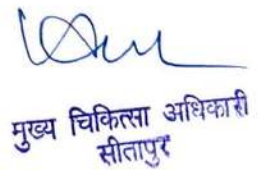 मुख्य चिकित्सा अधिकारी
सीतापुर